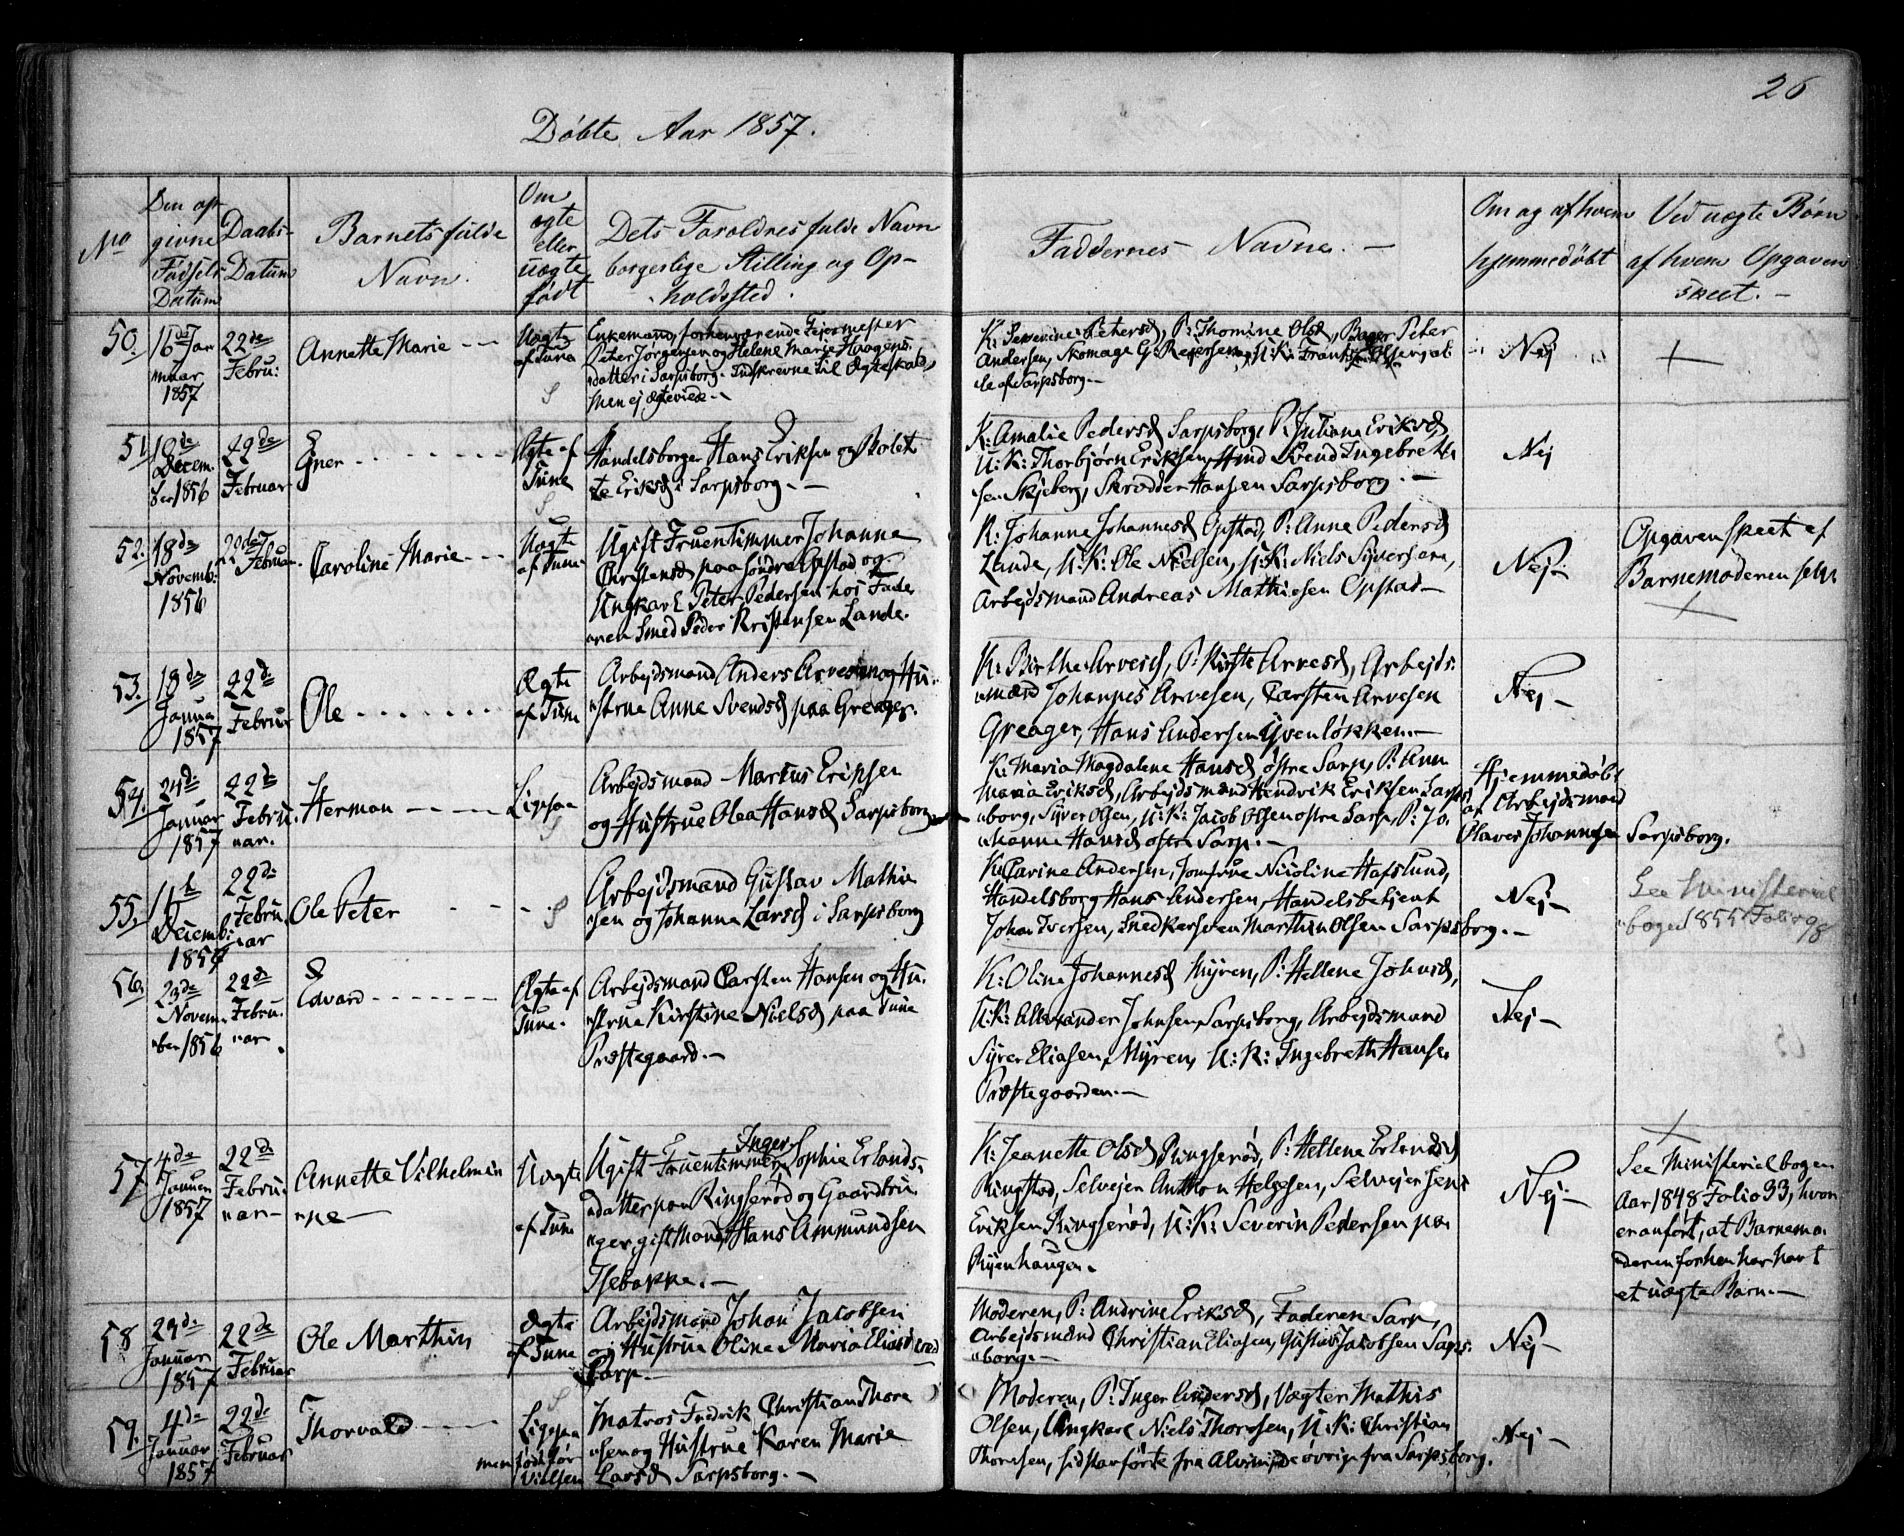 26
Døbte Aar 1857.
No
Den op-
givne
Fødsels
Datum
Daabs-
Datum
Barnets fulde
Navn.
Om
ægte
eller
uægte
født
Dets Forældres fulde Navn
borgerlige Stilling og Op-
holdssted.
Faddernes Navne. —
Om og af hvem
hjemmedøbt
Ved uægte Børn
af hvem Opgaven
skeet. —
50.
16de Jan
nuar
1857
22de
Febru:
Annette Marie — —
Uægte
af Tune
Enkemand, forhenværende Feiermester
Peter Jørgensen og Helene Marie Haagens
datter i Sarpsborg. Indskrevne til Ægteskab,
men ej ægteviede. —
K: Severine Petersd, P: Thomine Olsd, Bager Peter
Andersen, Skomager
le af Sarpsborg. —
Nej
+
51.
18de
Decem
ber 1856
22de
Februar
Ejner
Ægte af
Tune
Handelsborger Hans Eriksen og Bolet
te Eriksd i Sarpsborg. —
K: Amalie Pedersd Sarpsborg, P: Juliane Eriksd,
U: K: Thorbjørn Eriksen, Svend Ingebreth
sen Skjeberg, Skrædder Hansen Sarpsborg. —
Nej
52.
18de
Novemb:
1856
22de
Februar
Caroline Marie
Uægte
af Tune
Ugift Fruentimmer Johanne
Christensd paa søndre Opstad og
Ungkarl Peter Pedersen hos Fade
ren Smed Peder Kristensen Lande.
K: Johanne Johannesd Opstad, P: Anne Pedersd
Lande, U: K: Ole Nielsen, U: K: Niels Syversen,
Arbejdsmand Andreas Mathiesen Opstad —
Nej —
Opgaven skeet af
Barnemoderen selv
+
53.
18de
Janua
1857
22de
Februar
Ole
Ægte
af Tune
Arbejdsmand Anders Arvesen og Hu-
strue Anne Svendsd paa Greager.
K: Birthe Arvesd, P: Kirste Arvesd, Arbejds-
mænd Johannes Arvesen, Carsten Arvesen
Greager, Hans Andersen Yvenløkken. —
Nej —
54.
24de
Januar
1857
22de
Febru
uar.
Herman
Ligesaa
Arbejdsmand Marius Eriksen
og Hustrue Olea Hansd Sarpsborg
K: Maria Magdalene Hansd østre Sarp, P: Ann
Maria Eriksd, Arbejdsmænd Hendrik Eriksen Sarps
borg, Syver Olsen, U: K: Jacob Olsen østre Sarp, P: Jo-
hanne Hansd østre Sarp. —
Hjemmedøbt
af Arbejdsmand
Olaves Johannesen Sarpsborg.
55.
11te
Decemb:
1854
22de
Febru
uar
Ole Peter
Arbejdsmand Gustav Mathie
sen og Johanna Larsd i Sarpsborg
K: Carine Andersen, Jomfrue Nicoline Hafslund,
Handelsborg Hans Andersen, Handelsbetjent
Johan Iversen, Snedkersven Marthin Olsen Sarpsborg. —
Nej —
See Ministerial
bogen 1855 Folio 98
56.
23de
Novem
ber 1856
22de
Febru
uar
Edvard
Ægte af
Tune.
Arbejdsmand Carsten Hansen og Hu-
strue Kirstine Nielsd paa Tune
Præstegaard. —
K: Oline Johannesd Myren, P: Hellene Johnsd,
U: K: Allexander Johnsen Sarpsborg, Arbejdsmand
Syver Eliasen Myren, U: K: Ingebreth Hanse
Præstegaarden. —
Nej —
57.
4de
Januar
1857
22de
Febru
uar —
Annette Vilhelmin
ne —
Uægte
af Tune
Ugift Fruentimmer Inger Sophie Erlands-
datter paa Ringserød og Gaardbru
ger, gift Mand, Hans Ammundsen
Isebakke. —
K: Jeanette Olsd Ringserød, P: Hellene Erlandsd
Ringstød, Selvejer Anthon Helgesen, Selvejer Jens
Eriksen Ringserød, U: K: Severin Pedersen paa
Ryenhaugen.
Nej —
+
See Ministerialbogen
Aar 1848 Folio 33, hvor
er anført, at Barnemo-
deren forhen har havt
et uægte Barn. —
58
29de
Januar
1857
22de
Februar
Ole Marthin
Ægte
af Tune
Arbejdsmand Johan Jacobsen
og Hustrue Oline Maria Eliasd ved
Sarp —
Moderen, P: Andrine Eriksd, Faderen Sarp,
Arbejdsmænd Christian Eliasen, Gustav Jacobsen Sarps-
borg. —
Nej —
59.
4de
Januar
1857
22de
Februar
Thorvald
Ligesaa
men født før
Vielsen
Matros Fredrik Christian Thore
sen og Hustrue Karen Marie
Larsd Sarpsborg. —
Moderen, P: Inger Andersd, Vægter Mathis
Olsen, Ungkarl Niels Thoresen, U: K: Christian
Thoresen, sidstanførte fra Alvim, de øvrige fra Sarpsborg.
Nej —